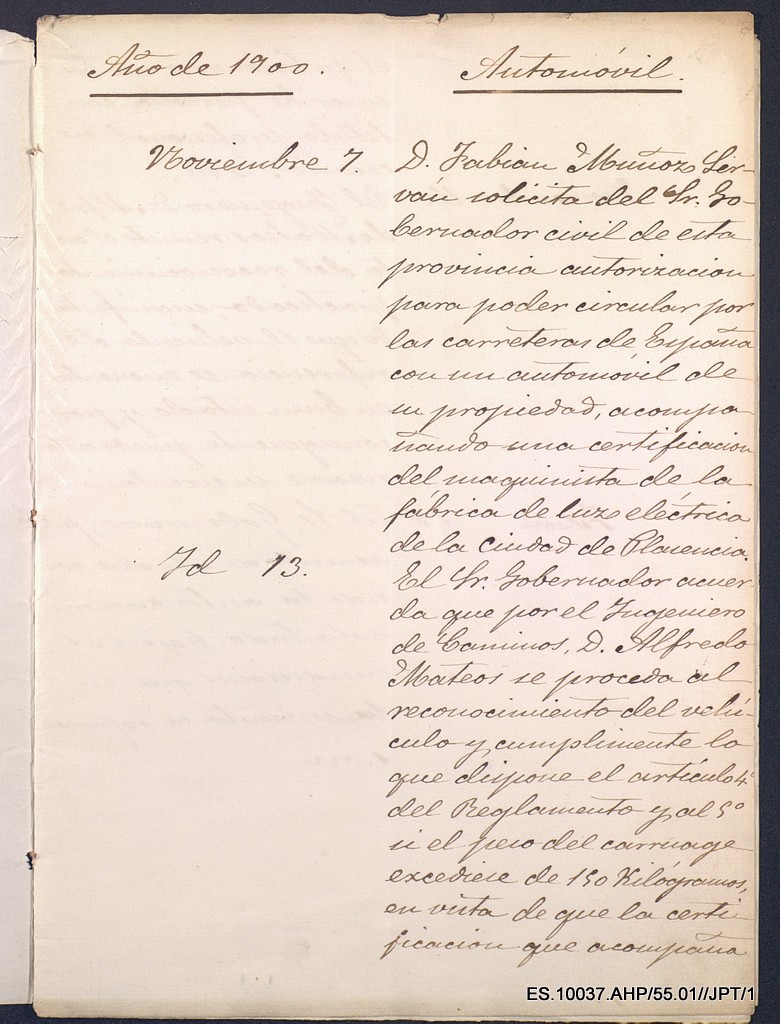 Año de 1900.
Automóvil.
Noviembre 7.
D. Fabian Muñoz Ser-
ván solicita del Sr. Go-
bernador civil de esta
provincia autorizacion
para poder circular por
las carreteras de España
con un automóvil de
su propiedad, acompa
ñando una certificacion
del maquinista de la
fábrica de luz eléctrica
de la ciudad de Plasencia.
Id 13.
El Sr. Gobernador acuer
da que por el Ingeniero
de Caminos, D. Alfredo
Mateos se proceda al
reconocimiento del vehí-
culo y cumplimente lo
que dispone el artículo 4º
del Reglamento y al 5º
si el peso del carruage
excediese de 150 Kilógramos,
en vista de que la certi-
ficacion que acompaña
ES.10037.AHP/55.01//JPT/1